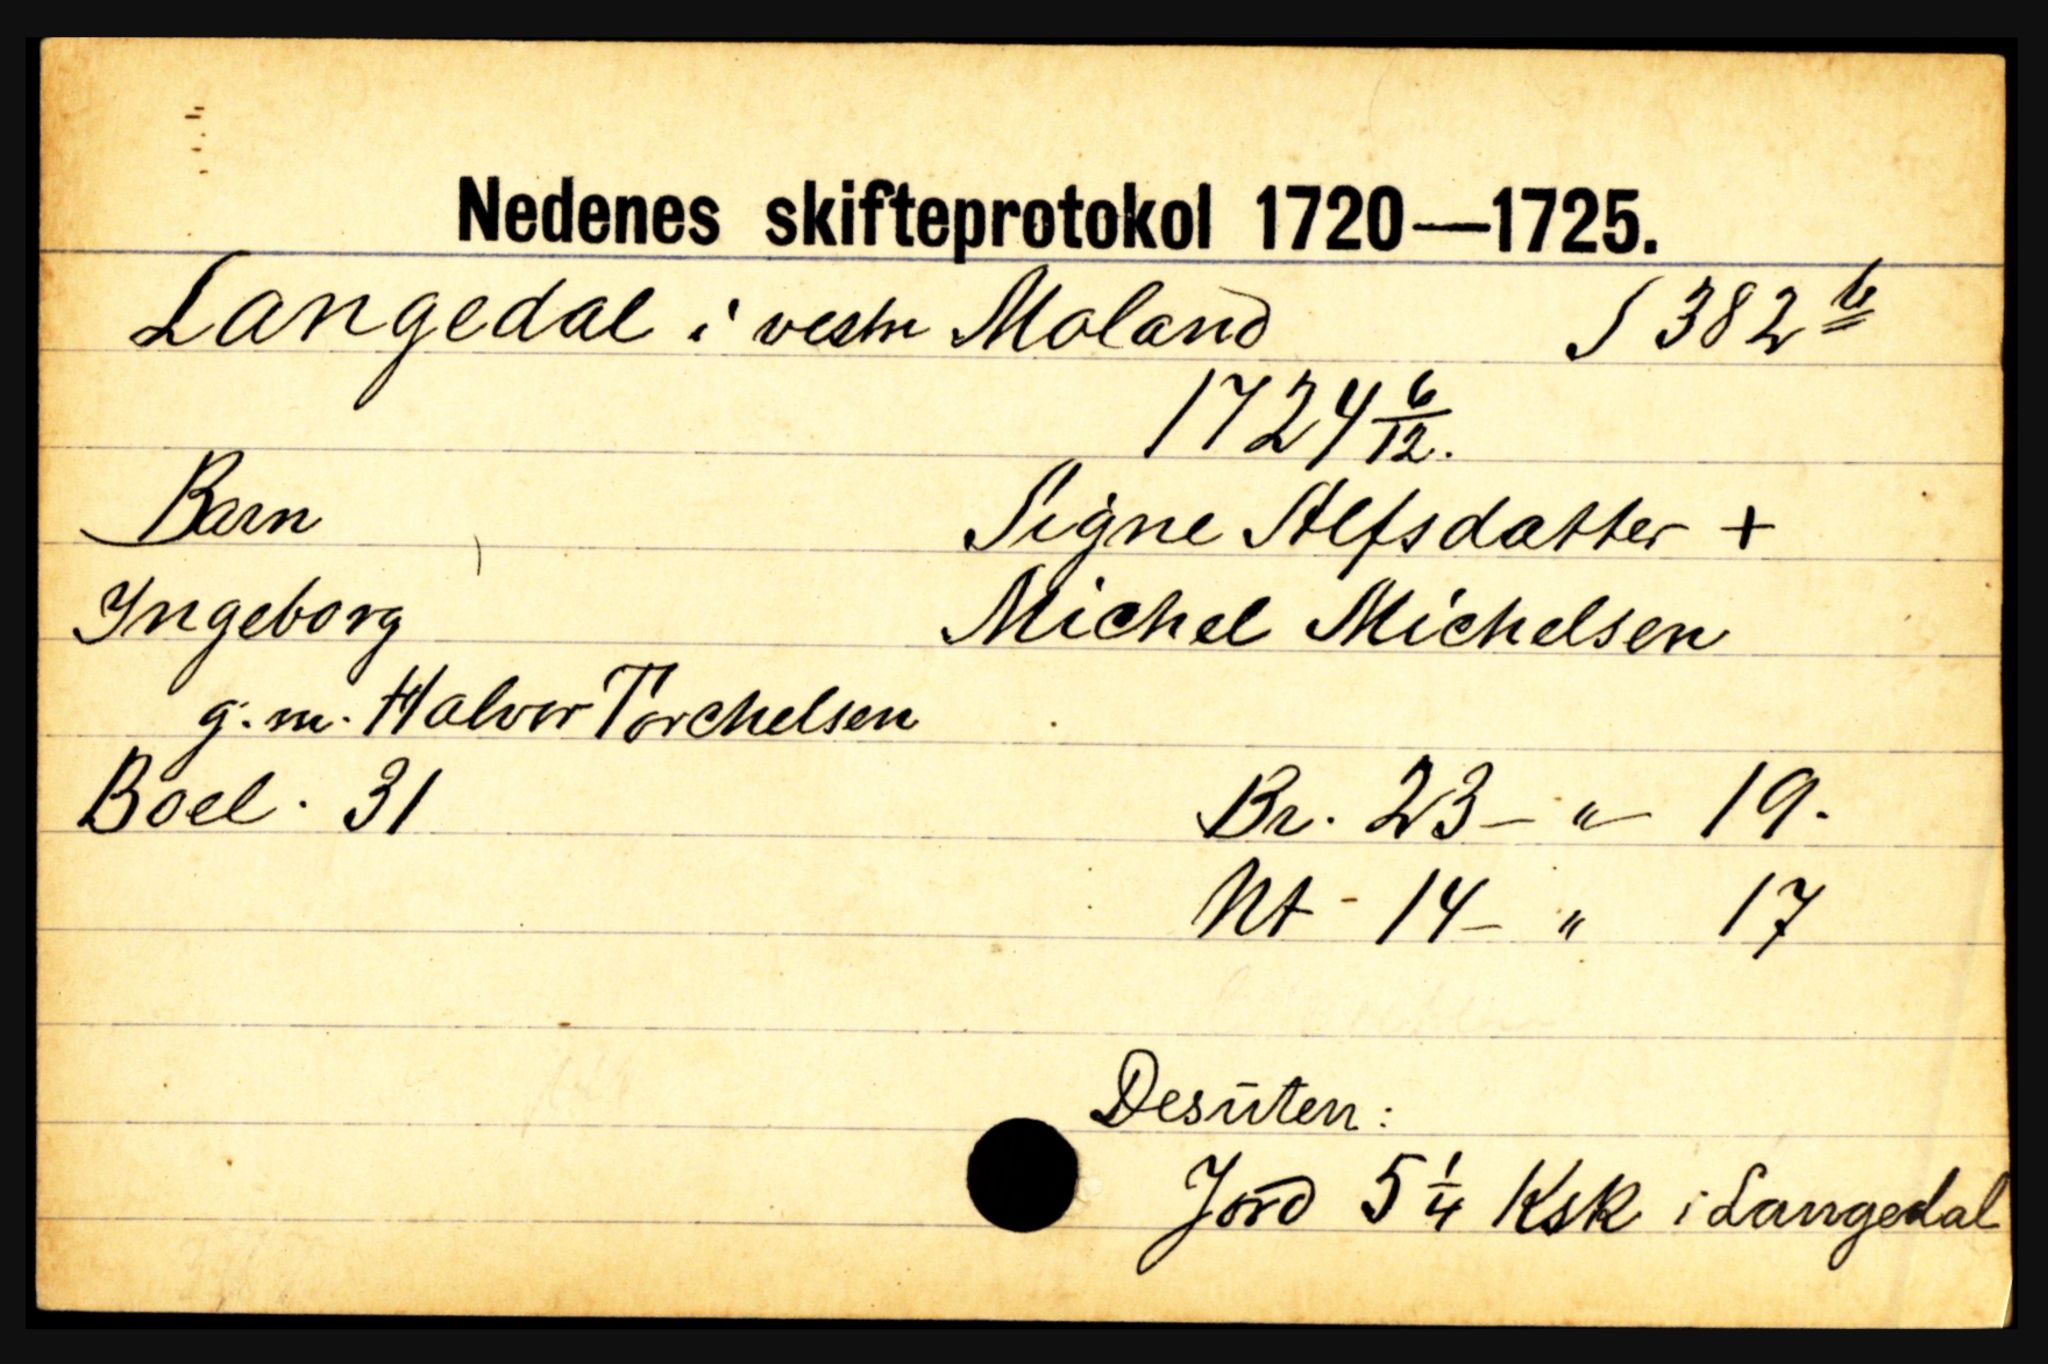 Nedenes skifteprotokol 1720—1725.
Langedal i vestre Moland S 382 b
1724 6/12.
Barn Signe Alfsdatter +
Ingeborg Michel Michelsen
g. m. Halvor Torchelsen
Boel. 31 Br. 23 – " – 19.
Nt - 14 – " 17
Desuten:
Jord 5 1/4 Ksk i Langedal